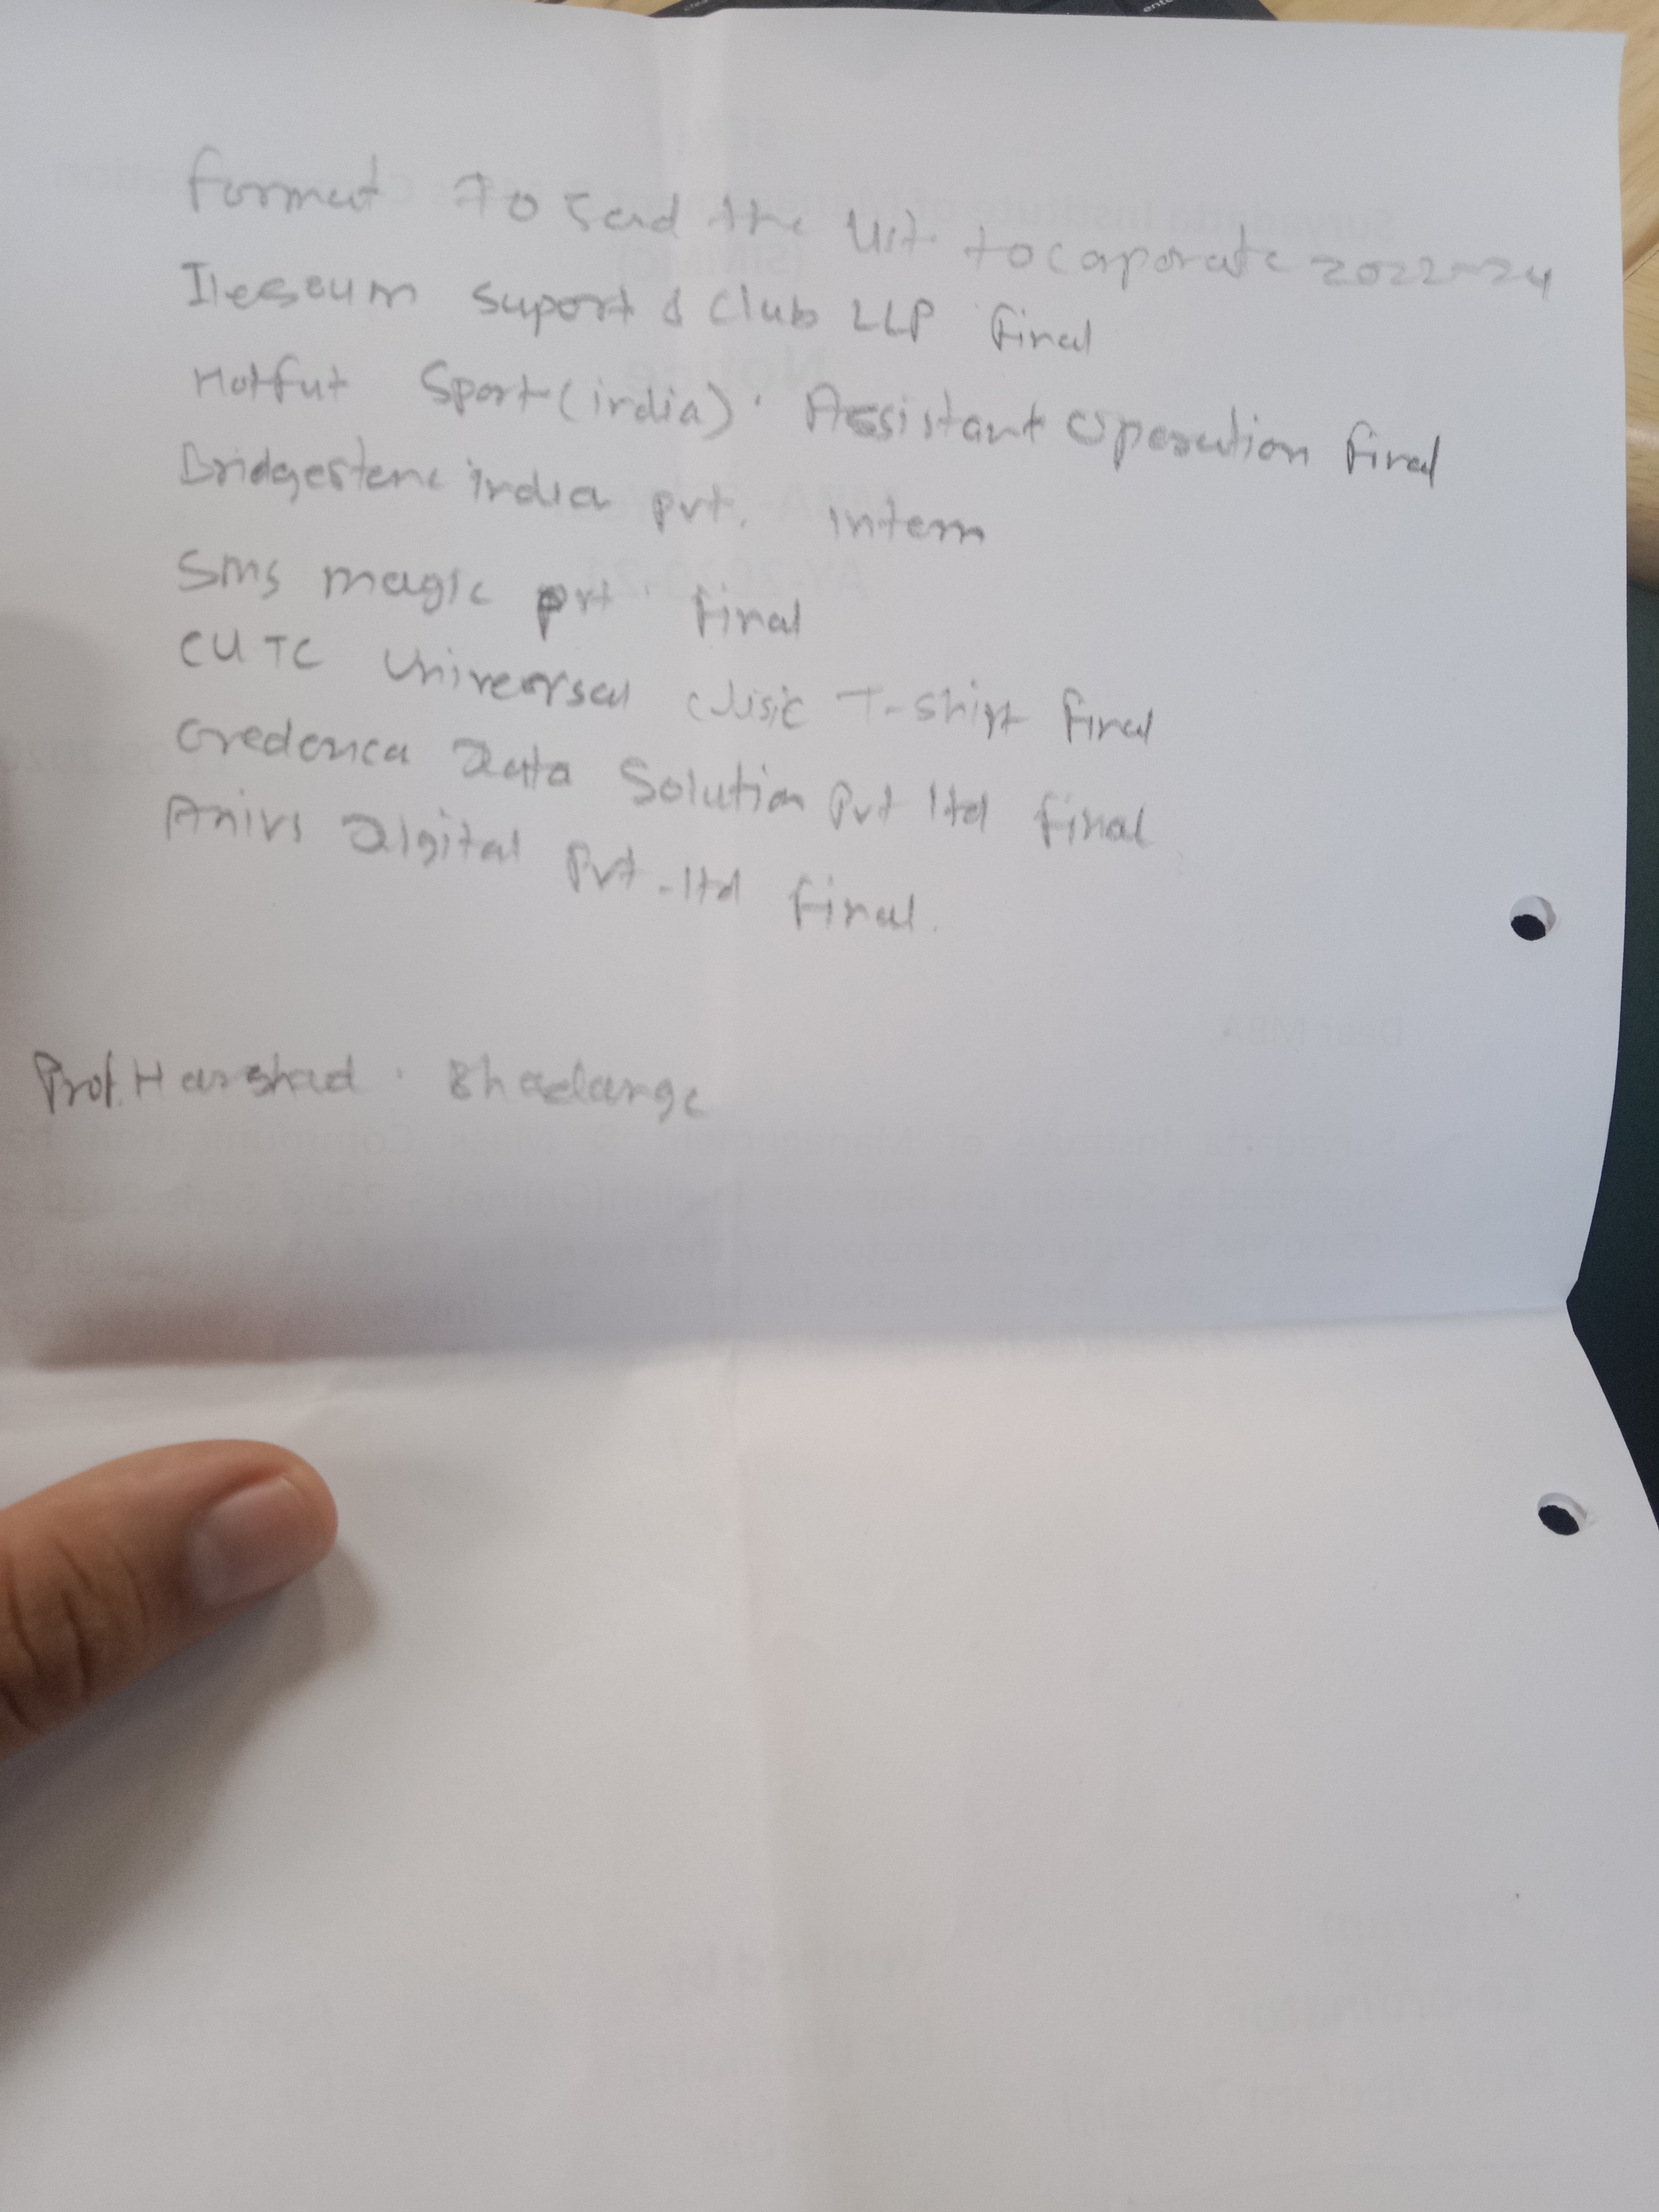 Format To Send the list to caporate 2022-24
suport & club LLP final
Hotfut Sport (india). Assistant Operation final
Bridgestone india pvt. intern
Sms magic pvt. final
CUTC Universal T-shirt final
Credenca Data Solution Pvt ltd final
Digital Pvt.ltd final.
Prof. Harshad. Bhadange